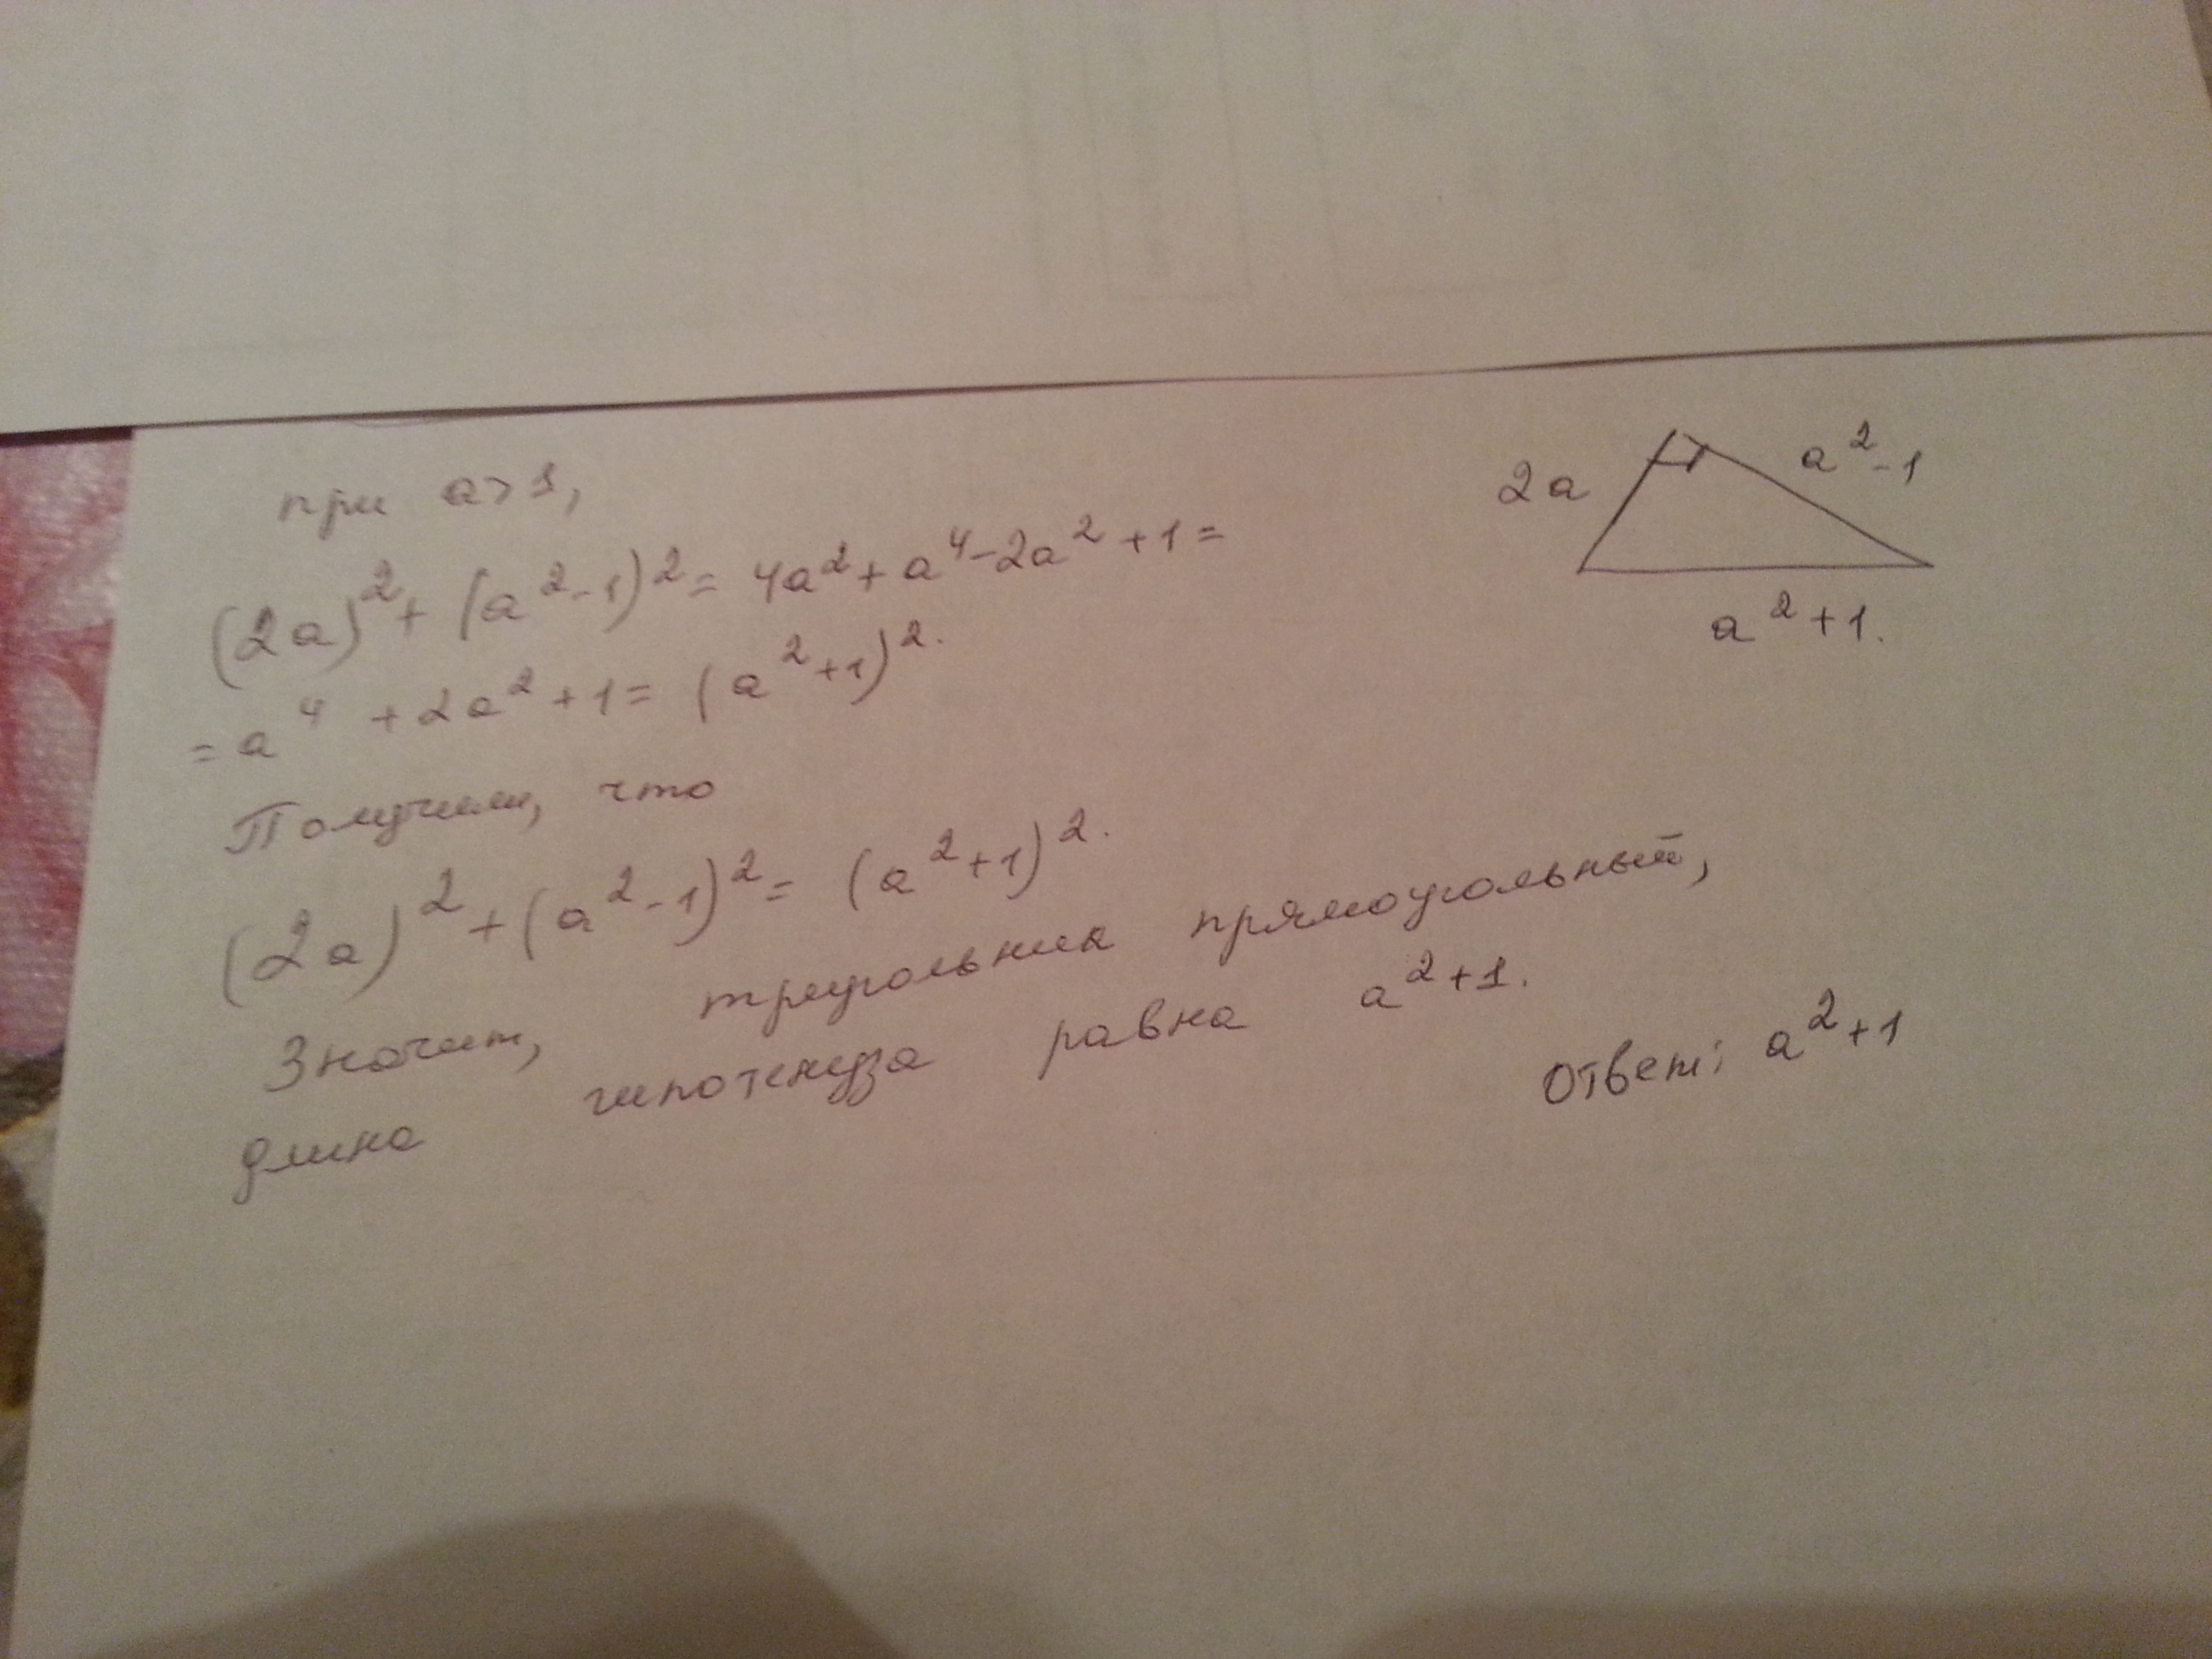 при a>1,
(2a)²+(a²-1)²= 4a²+a⁴-2a²+1=
=a⁴ +2a²+1= (a²+1)².
Получили, что
(2a)²+(a²-1)²= (a²+1)².
Значит, треугольник прямоугольный,
длина гипотенуза равна a²+1.
Ответ: a²+1
2a
a²-1
a²+1.